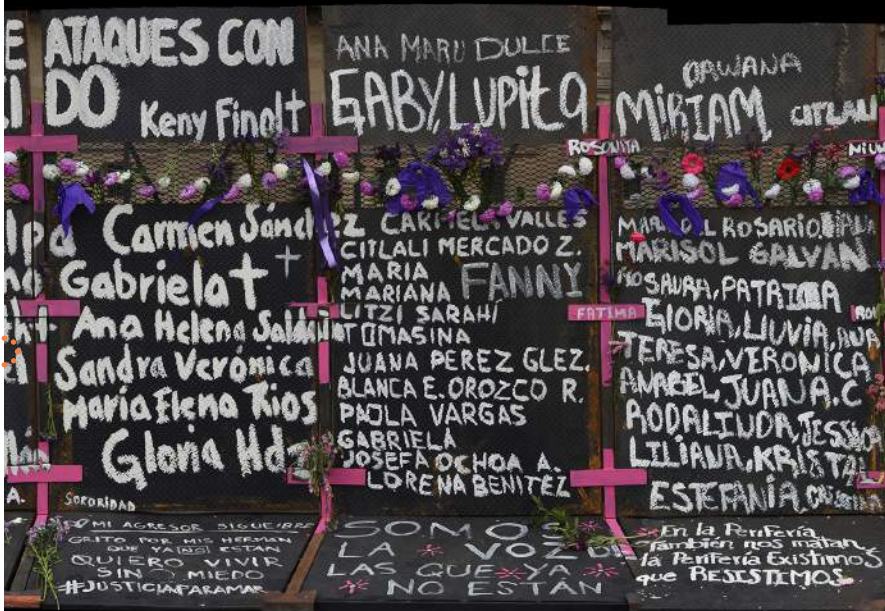 ATAQUES CON
DO
Keny Finolt
Carmen Sánchez
Gabriela
Ana Helena
Sandra Verónica
Maria Elena Rios
Gloria Hdz
SORORIDAD
MI AGRESOR SIGUE
GRITO POR MIS
QUE YA NO ESTAN
QUIERO VIVIR
SIN MIEDO
#JUSTICIAPARAMAR
ANA MARU DULCE
GABY, LUPITA
CARMELA VALLES
CITLALI MERCADO Z.
MARIA
FANNY
MARIANA
LITZI SARAHÍ
TOMASINA
JUANA PEREZ GLEZ.
BLANCA E. OROZCO R.
PAOLA VARGAS
GABRIELA
JOSEFA OCHOA A.
LORENA BENITEZ
SOMOS
LA VOZ DE
LAS QUE YA
NO ESTÁN
MIRIAM CITLALI
ROSONITA
ROSARIO
MARISOL GALVAN
ROSAURA, PATRICIA
FATIMA
GLORIA, LLUVIA,
TERESA, VERONICA
ANABEL, JUANA, C
RODALINDA,
LILIANA, KRISTAL
ESTEFANÍA,
En la Periferia
También nos matan,
la Periferia Existimos
que RESISTIMOS